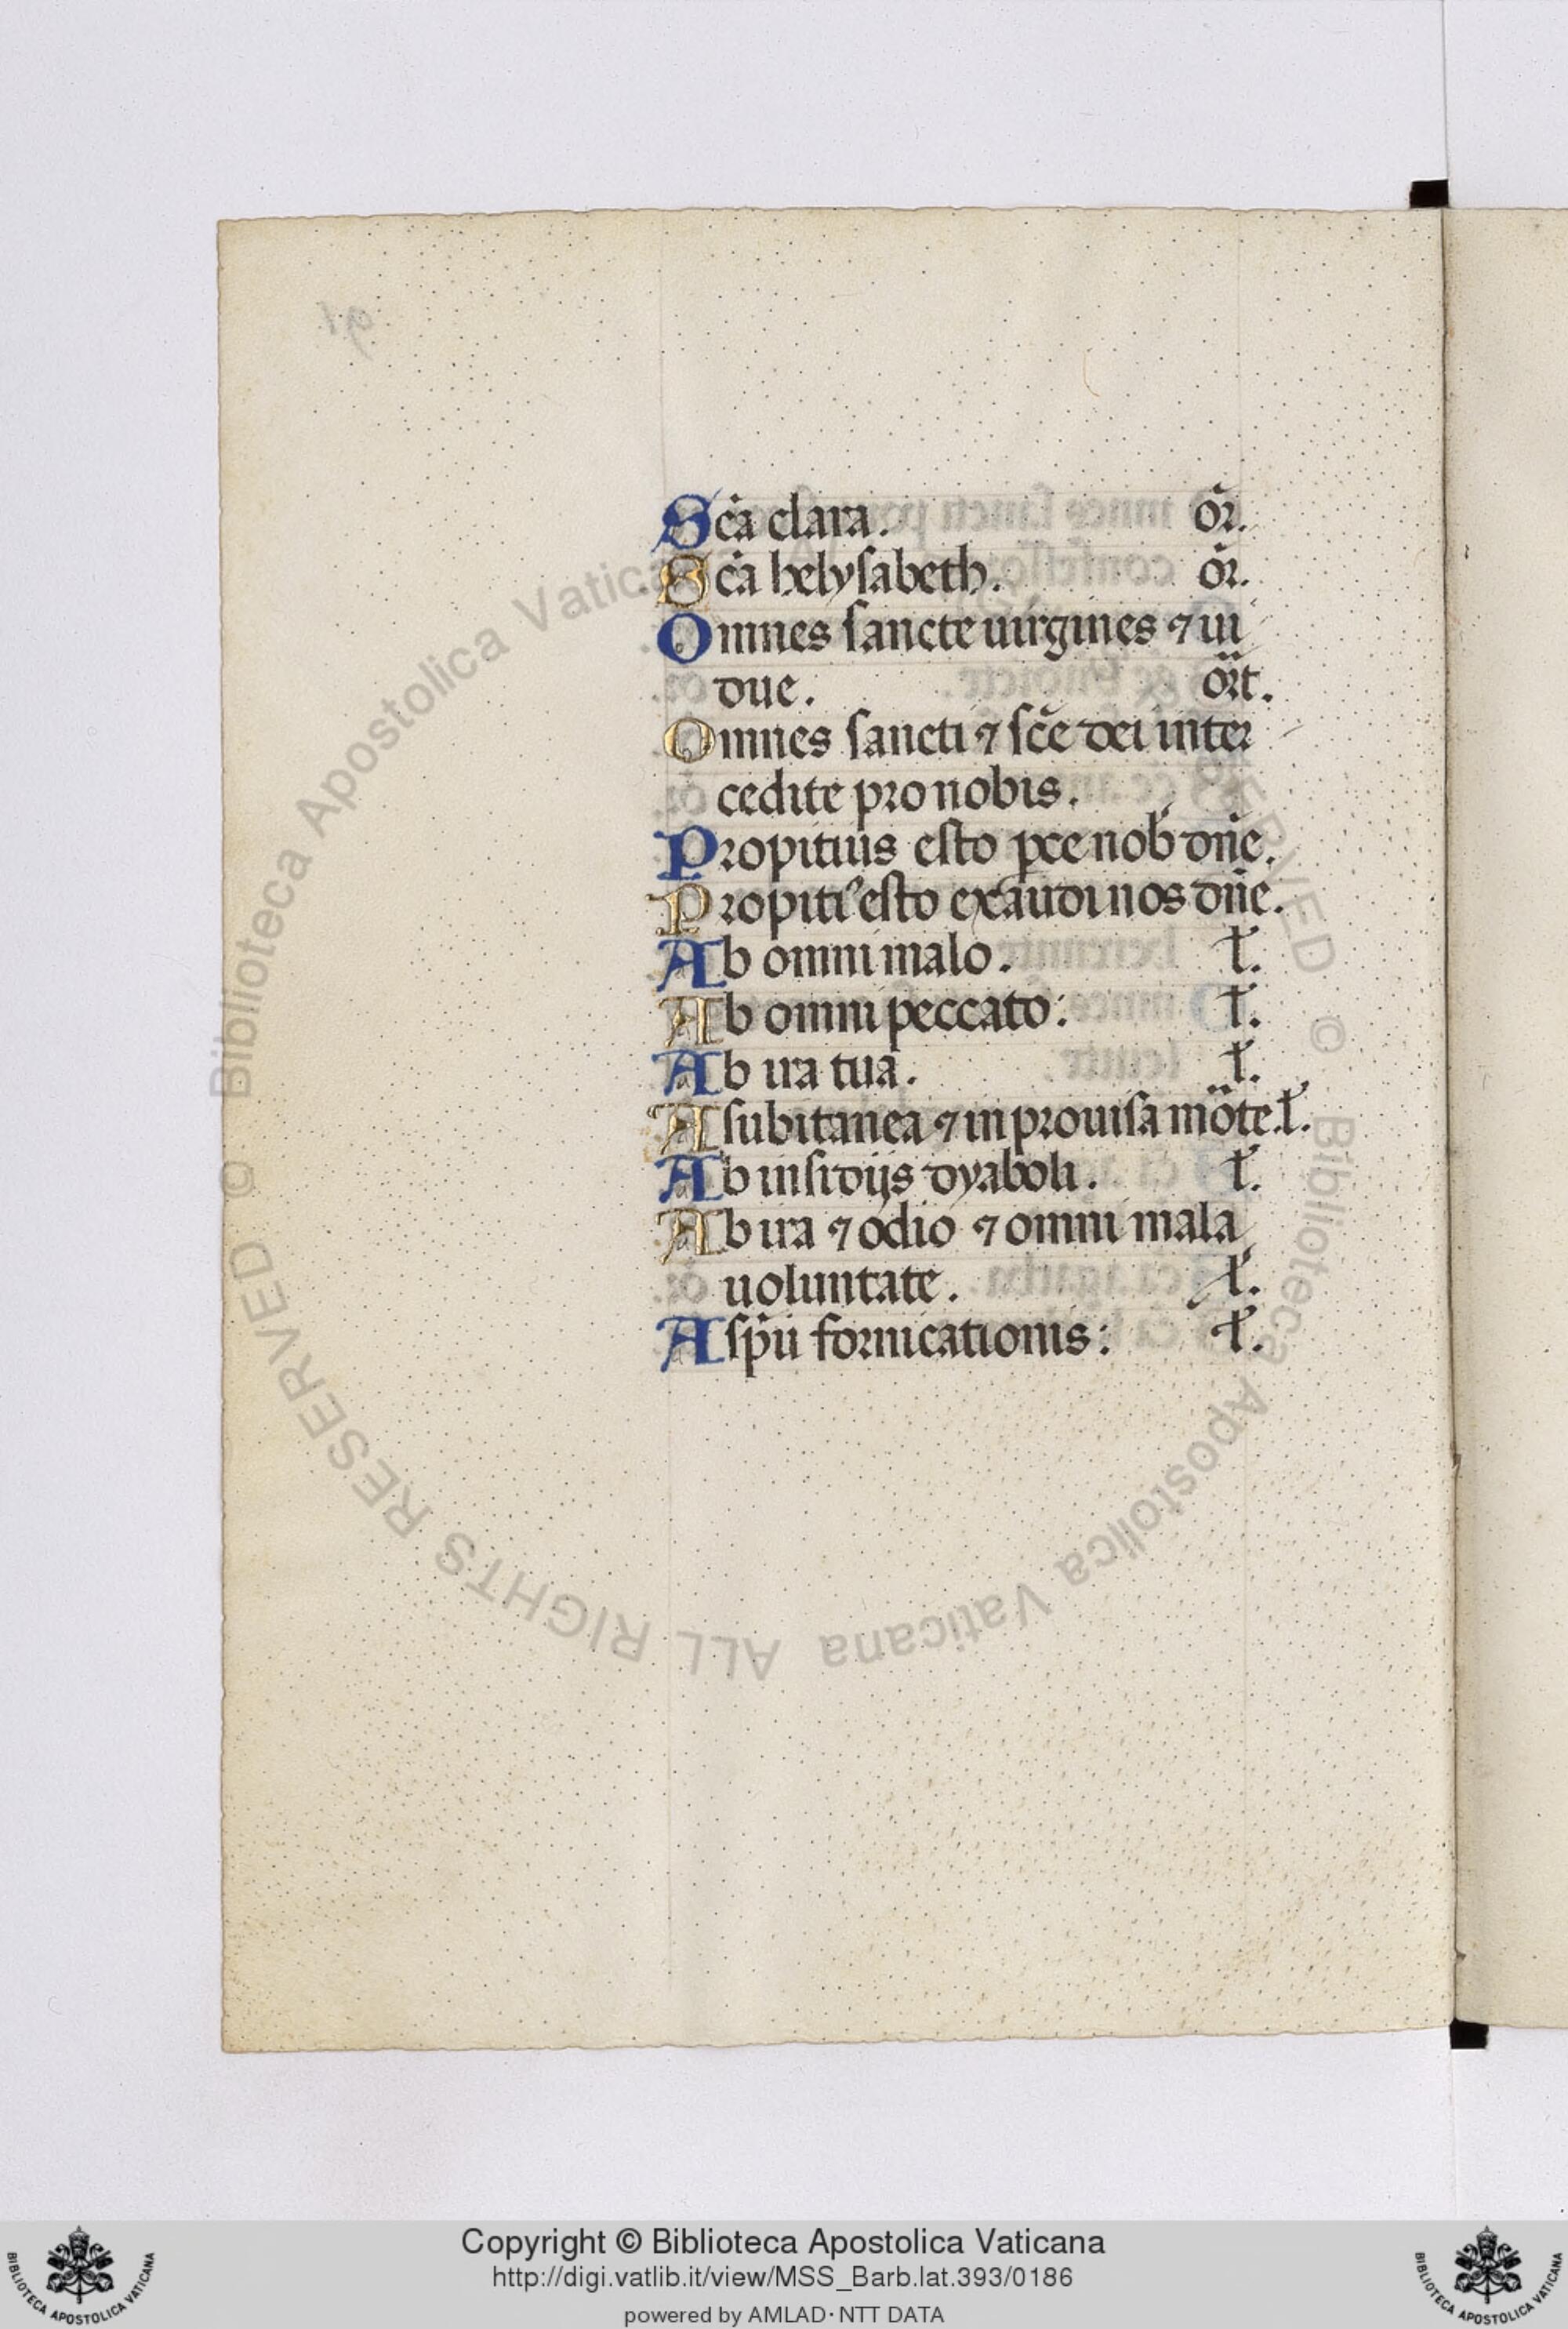 Sc̄a clara. or̄.
Sc̄a helysabeth. or̄.
Omnes sancte uirgines ⁊ ui
due. or̄t.
Omnes sancti ⁊ sc̄e dei inter
cedite pro nobis.
Propitius esto pce nob̄ dn̄e.
Propiti⁹ esto exaudi nos dn̄e.
Ab omni malo. l̄.
Ab omni peccato: l̄.
Ab ira tua. l̄.
A subitanea ⁊ inprouisa mōte. l̄.
Ab insidijs dyaboli. l̄.
Ab ira ⁊ odio ⁊ omni mala
uoluntate. l̄.
A sp̄u fornicationis: l̄.
© Biblioteca Apostolica Vaticana ALL RIGHTS RESERVED © Biblioteca Apostolica Vaticana
Copyright © Biblioteca Apostolica Vaticana
http://digi.vatlib.it/view/MSS_Barb.lat.393/0186
powered by AMLAD·NTT DATA
BIBLIOTECA APOSTOLICA VATICANA
BIBLIOTECA APOSTOLICA VATICANA